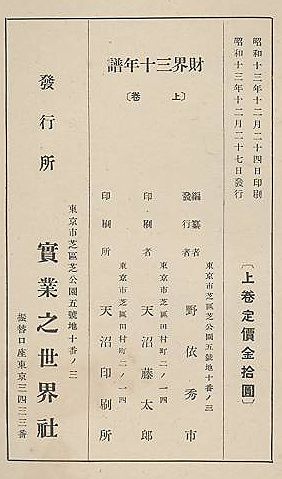 昭和十三年十二月二十四日印刷
昭和十三年十二月二十七日發行
〔上卷定價金拾圓〕
財界三十年譜
〔上卷〕
東京市芝區芝公園五號地十番ノ三
編纂者
發行者
野依秀市
東京市芝區田村町二ノ一四
印刷者
天沼藤太郎
東京市芝區田村町二ノ一四
印刷所
天沼印刷所
發行所
東京市芝區芝公園五號地十番ノ三
實業之世界社
振替口座東京三四三三番